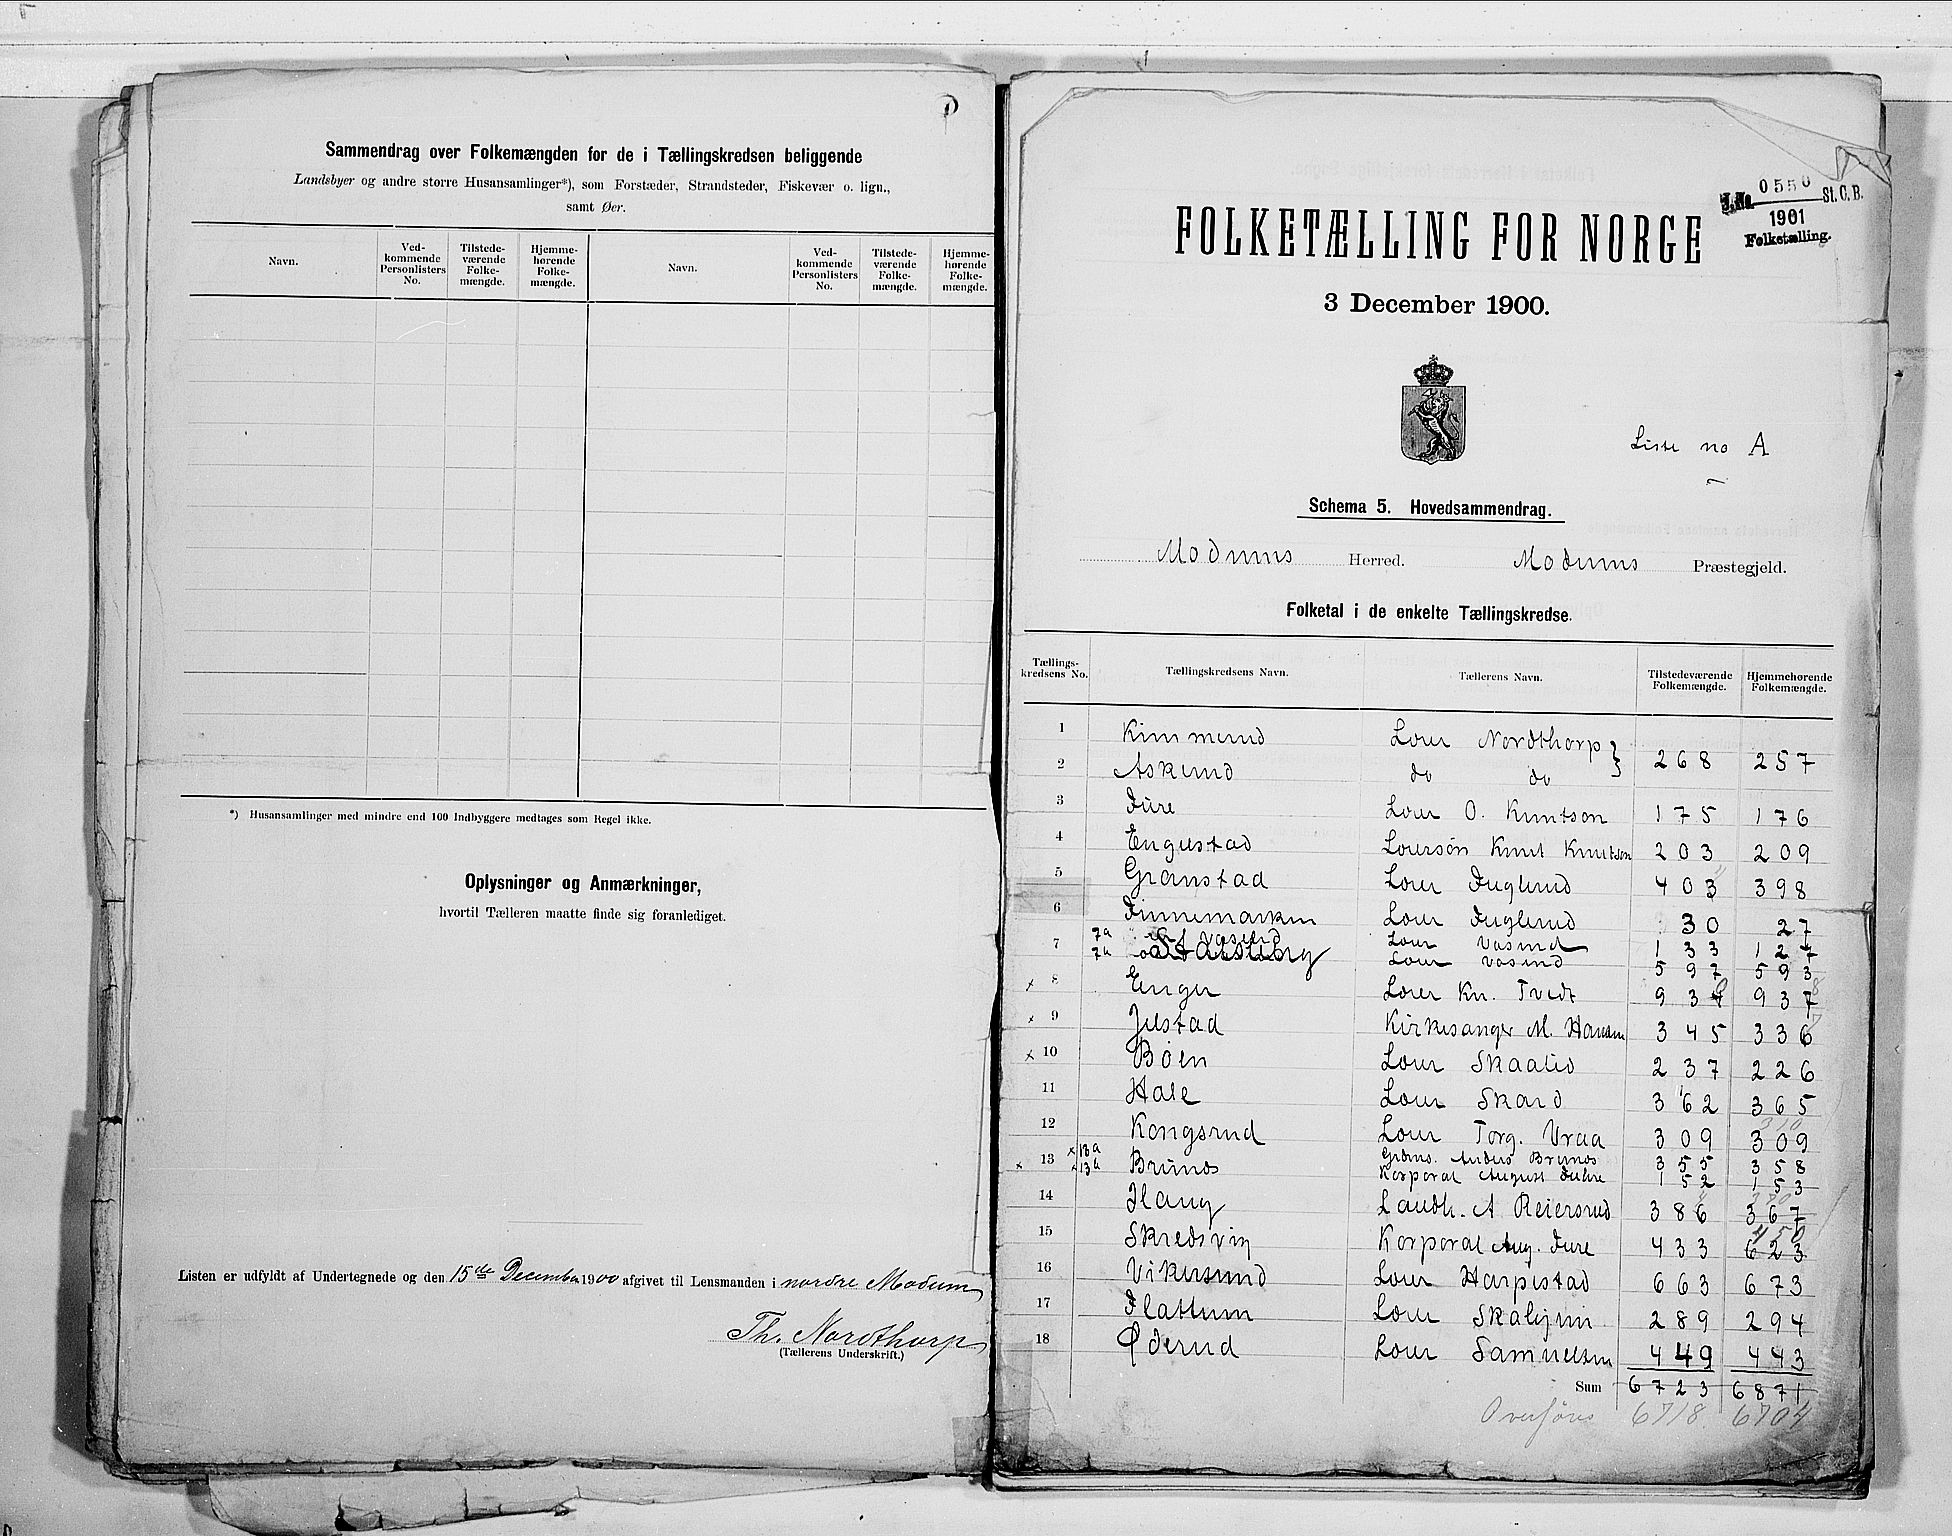 Sammendrag over Folkemængden for de i Tællingskredsen beliggende
Landsbyer og andre større Husansamlinger*), som Forstæder, Strandsteder, Fiskevær o. lign.,
samt Øer.
Navn. Ved-kommende Personlisters No. Tilstede-værende Folke-mængde. Hjemme-hørende Folke-mængde. Navn. Ved-kommende Personlisters No. Tilstede-værende Folke-mængde. Hjemme-hørende Folke-mængde.
*) Husansamlinger med mindre end 100 Indbyggere medtages som Regel ikke.
Oplysninger og Anmærkninger,
hvortil Tælleren maatte finde sig foranlediget.
Listen er udfyldt af Undertegnede og den 15de December 1900 afgivet til Lensmanden i nordre Modum
Th. Nordthorp
(Tællerens Underskrift.)
J.No. 0550 St.C.B.
1901
Folketælling.
FOLKETÆLLING FOR NORGE
3 December 1900.
Liste no A
Schema 5. Hovedsammendrag.
Modums Herred. Modums Præstegjeld.
Folketal i de enkelte Tællingskredse.
Tællings-kredsens No. Tællingskredsens Navn. Tællerens Navn. Tilstedeværende Folkemængde. Hjemmehørende Folkemængde.
1 Kimmerud Lærer Nordthorp
2 Askerud do do 268 257
3 Fure Lærer O. Knutson 175 176
4 Engelstad Lærersøn Knut Knutson 203 209
5 Granstad Lærer Fuglerud 403 398
6 Finnemarken Lærer Fuglerud 30 27
7 7a Lærer 133 127
7b Stalsberg Lærer 597 593
x 8 Enger Lærer Kn. Tvedt 937
x 9 Gustad Kirkesanger M. Hansen 345 336
x 10 Bøen Lærer Skaalid 237 226
11 Hole Lærer Skard 362 365
12 Kongsrud Lærer Torg. Vraa 309 309
x 13 x 13a Brunes Anders Brunes 355 358
x 13b Korporal August Fure 152 153
14 Haug Landh. A Reiersrud 386 367
15 Skredsvig Korporal Aug. Fure 433 623 450
16 Vikersund Lærer Harpestad 663 673
17 Flattum Lærer 289 294
18 Øderud Lærer Samuelsen 449 443
Sum 6723 6871
Overføres 6718 6704